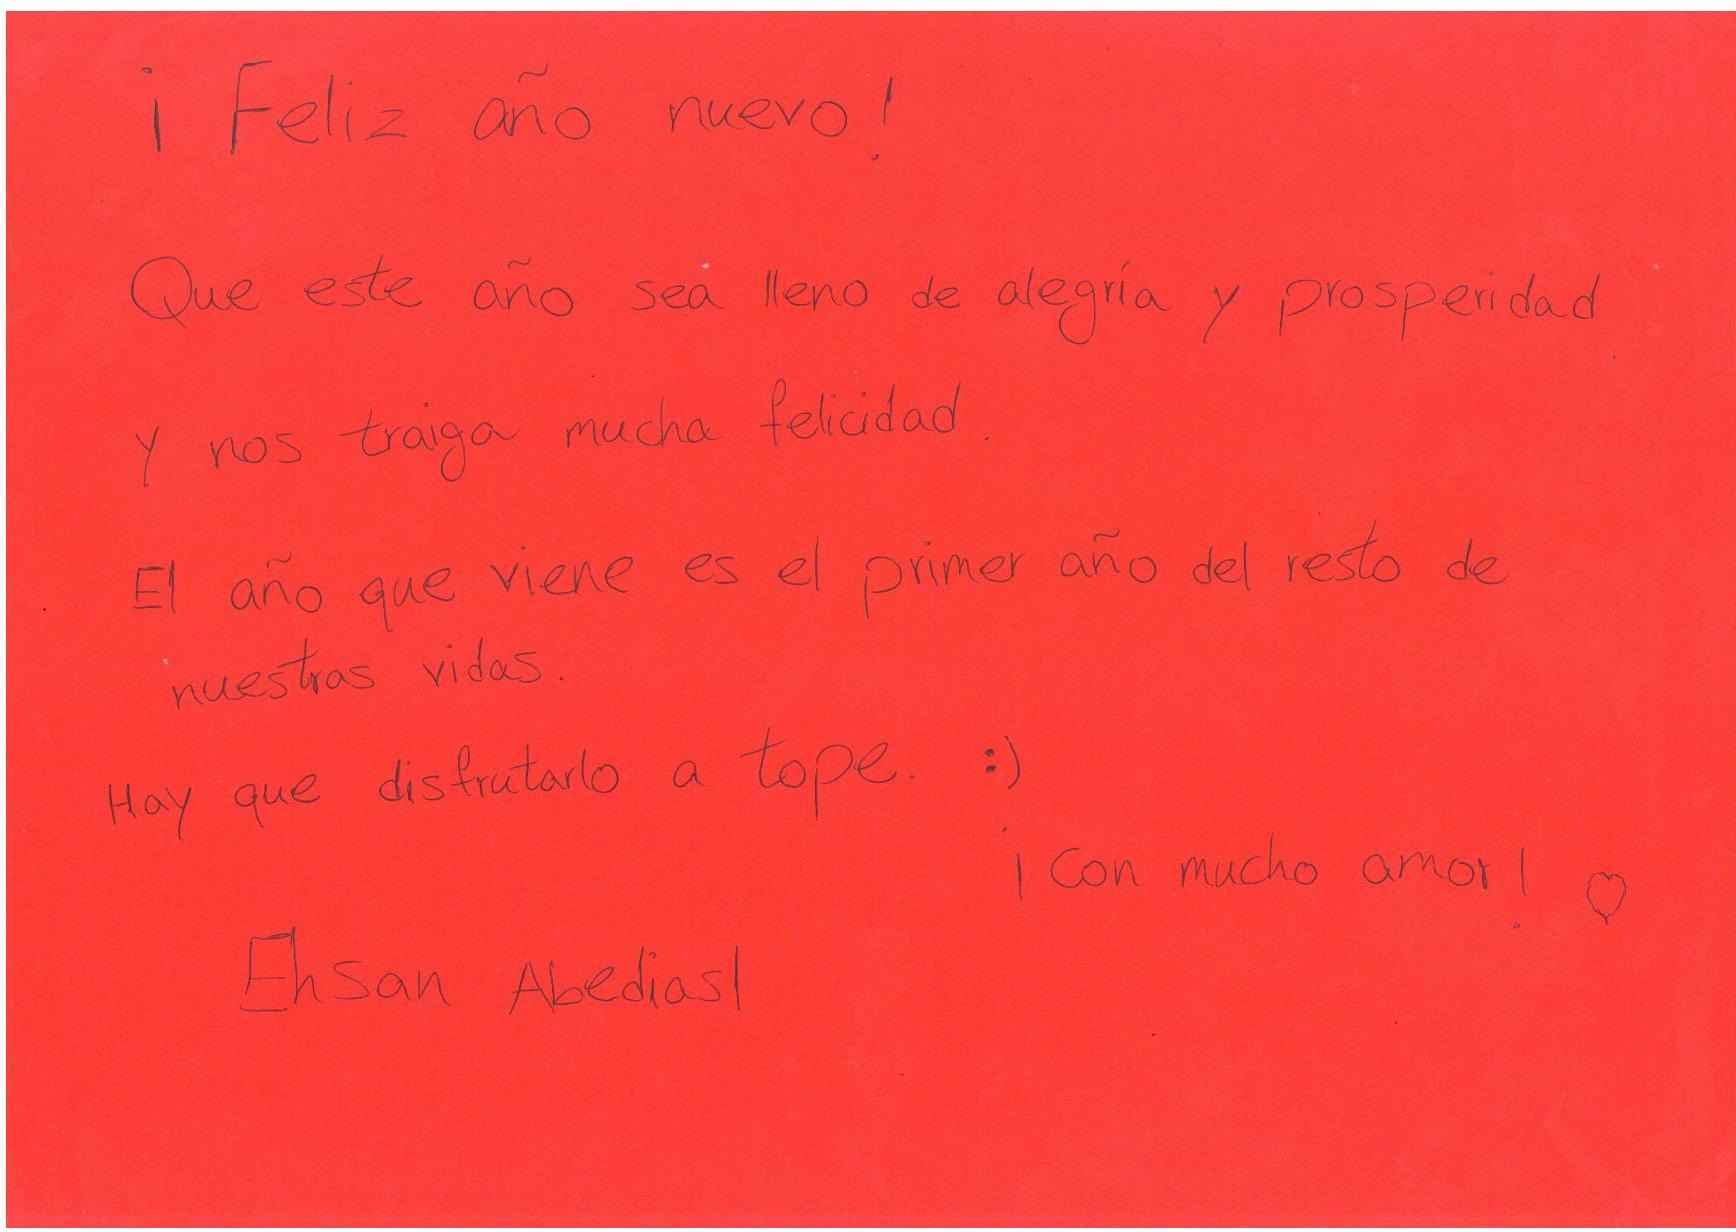 ¡Feliz año nuevo!
Que este año sea lleno de alegría y prosperidad
y nos traiga mucha felicidad.
El año que viene es el primer año del resto de
nuestras vidas.
Hay que disfrutarlo a tope. :)
¡Con mucho amor! ♡
Ehsan Abediasl